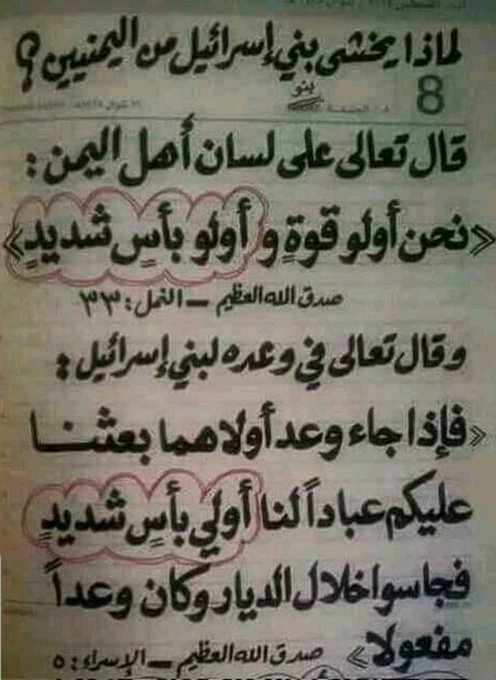 لماذا يخشى بني إسرائيل من اليمنيين؟
بنو
8
قال تعالى على لسان أهل اليمن:
«نحن أولو قوةٍ و أولو بأسٍ شديدٍ»
صدق الله العظيم — النمل: ٣٣
وقال تعالى في وعده لبني إسرائيل:
«فإذا جاء وعد أولاهما بعثنا
عليكم عباداً لنا أولي بأسٍ شديدٍ
فجاسوا خلال الديار وكان وعداً
مفعولا» صدق الله العظيم — الإسراء: ٥